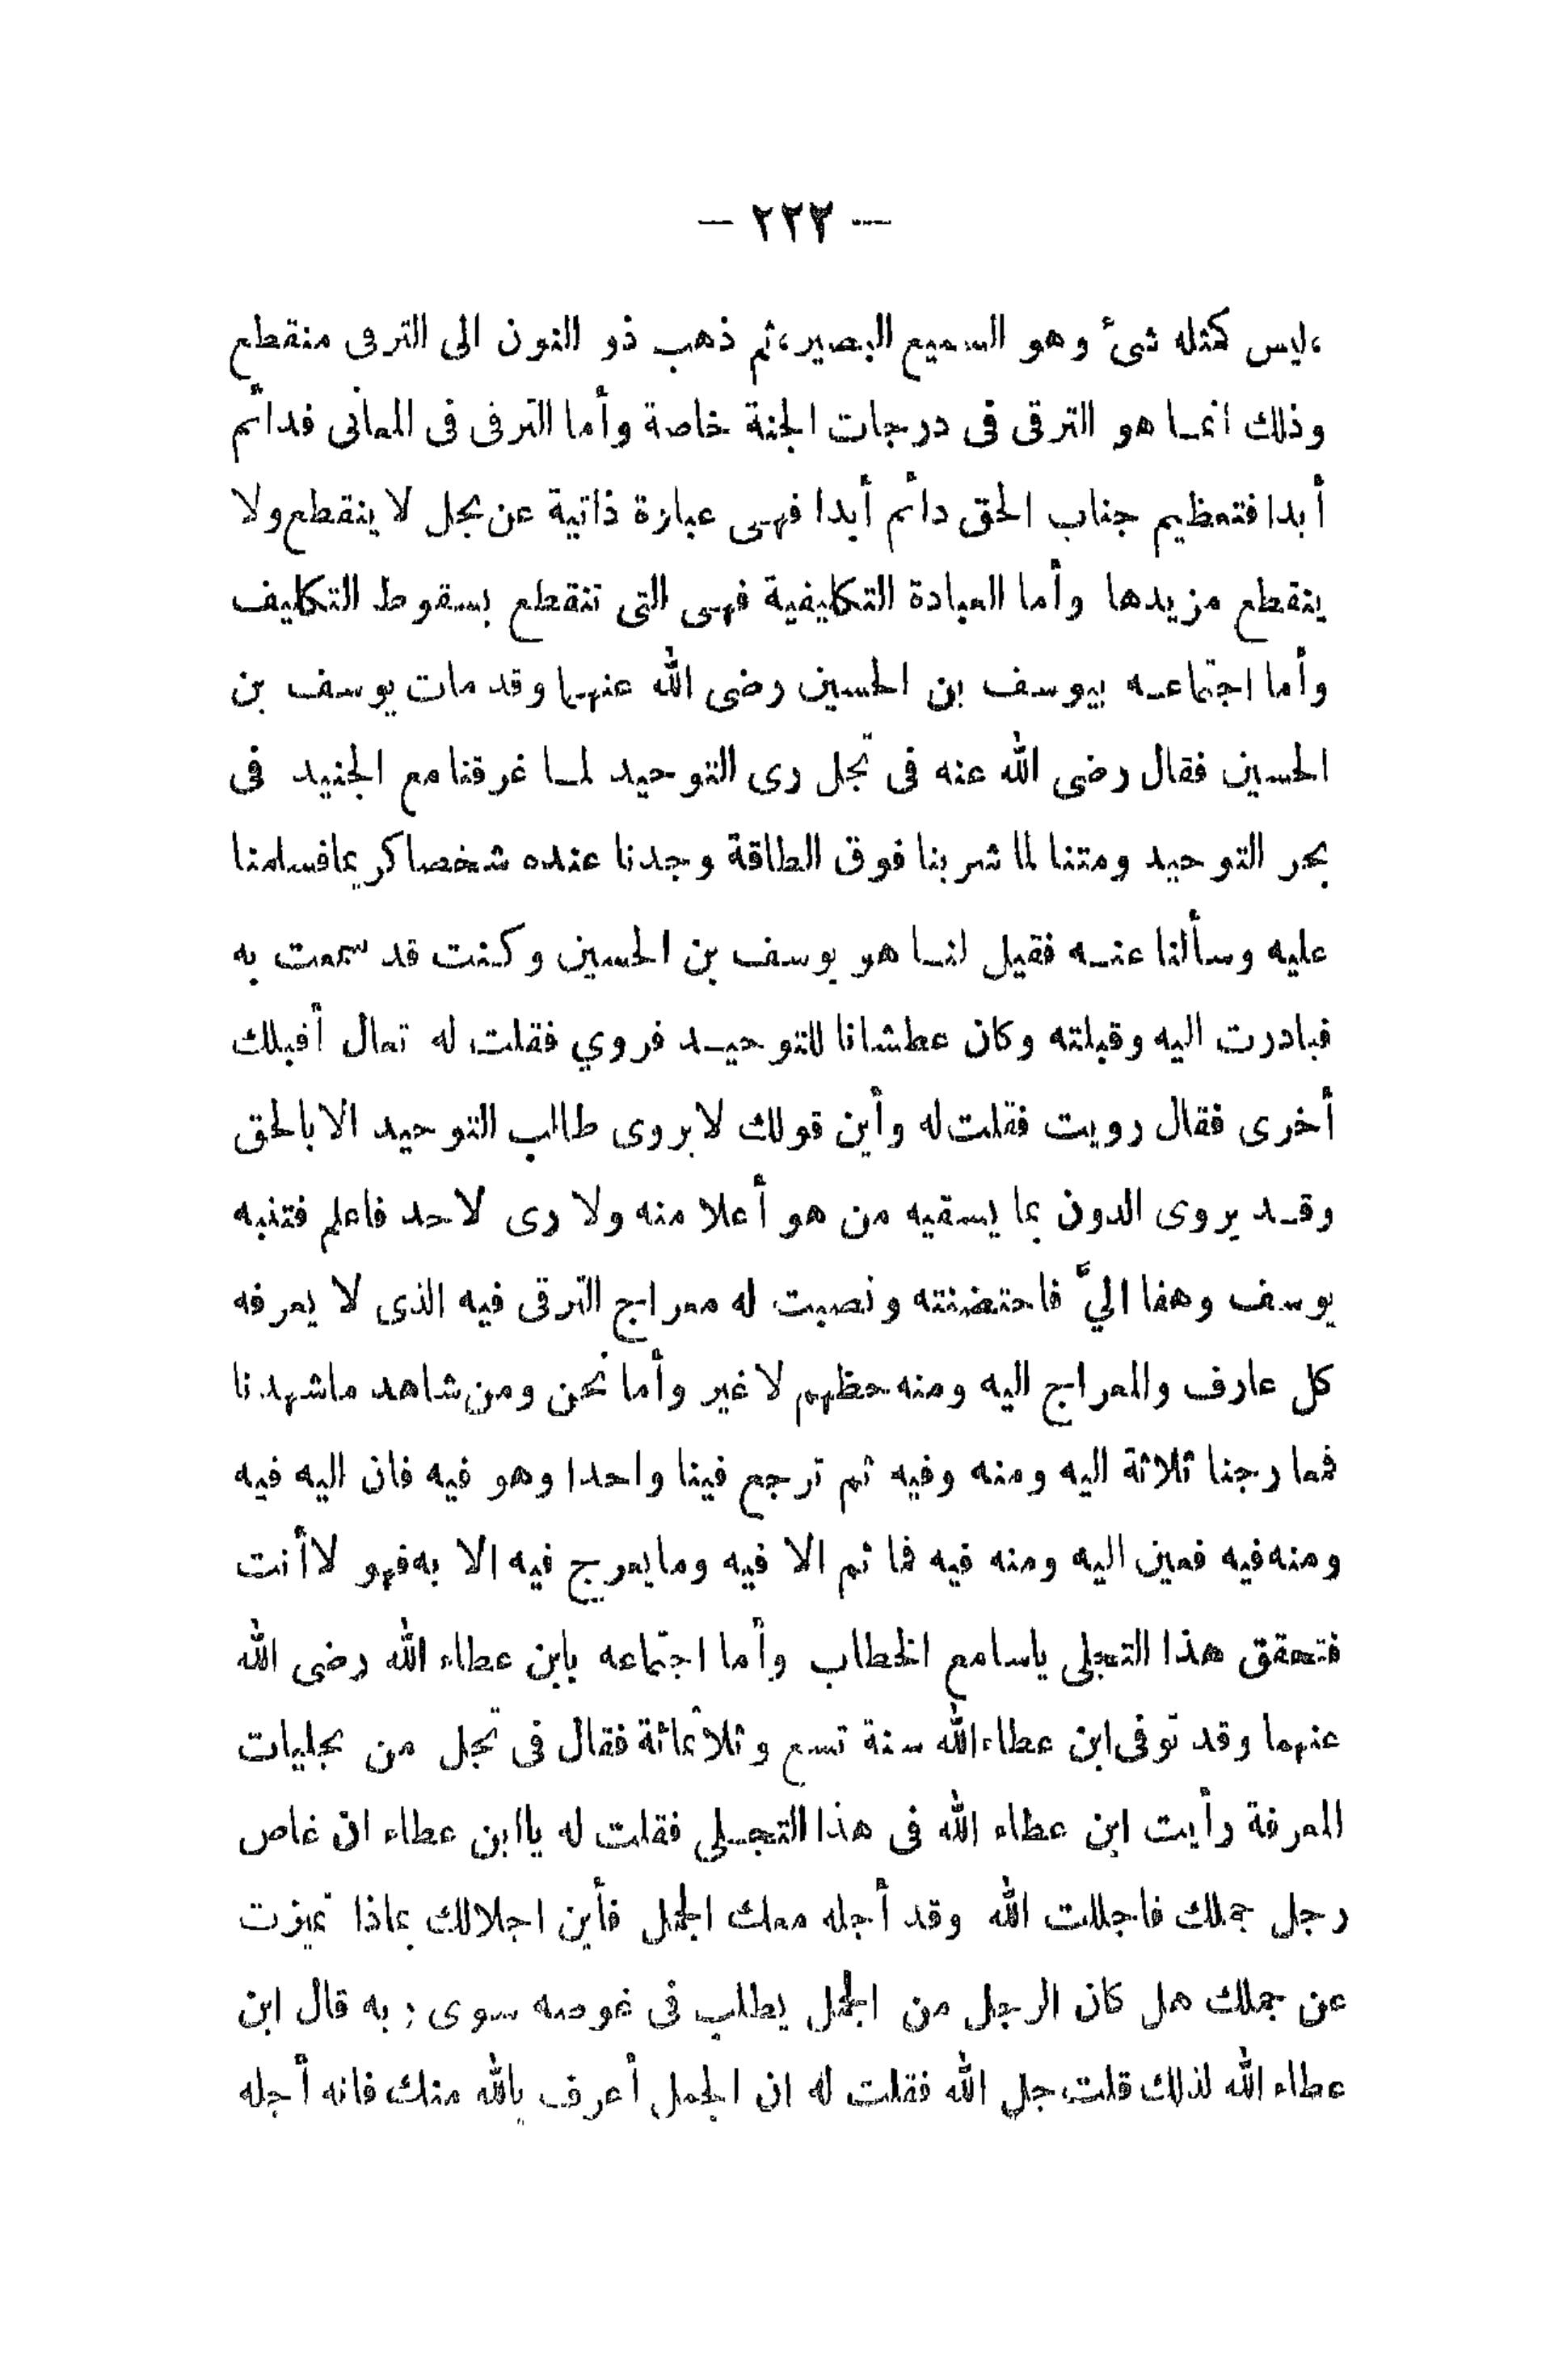 — ٢٢٢ —
،ليس كمثله شئ وهو السميع البصير، ثم ذهب ذو النون الى الترقى منقطع
وذلك انما هو الترقى فى درجات الجنة خاصة وأما الترقى فى المعانى فدائم
أبدا فتعظيم جناب الحق دائم أبدا فهى عبارة ذاتية عن تجل لا ينقطع ولا
ينقطع مزيدها وأما العبادة التكليفية فهى التى تنقطع بسقوط التكليف
وأما اجتماعه بيوسف بن الحسين رضى الله عنهما وقد مات يوسف بن
الحسين فقال رضى الله عنه فى تجل رى التوحيد لما غرقنا مع الجنيد فى
بحر التوحيد ومتنا لما شربنا فوق الطاقة وجدنا عنده شخصا كريما فسلمنا
عليه وسألنا عنه فقيل لنا هو يوسف بن الحسين وكنت قد سمعت به
فبادرت اليه وقبلته وكان عطشانا للتوحيد فروي فقلت له تعال أقبلك
أخرى فقال رويت فقلت له وأين قولك لا يروى طالب التوحيد الا بالحق
وقد يروى الدون بما يسقيه من هو أعلا منه ولا رى لاحد فاعلم فتنبه
يوسف وهفا اليَّ فاحتضنته ونصبت له معراج الترقى فيه الذى لا يعرفه
كل عارف والمعراج اليه ومنه حظهم لا غير وأما نحن ومن شاهد ما شهدنا
فمعارجنا ثلاثة اليه ومنه وفيه ثم ترجع فينا واحدا وهو فيه فان اليه فيه
ومنه فيه فعين اليه ومنه فيه فما ثم الا فيه وما يعرج فيه الا به فهو لا أنت
فتحقق هذا التجلى ياسامع الخطاب وأما اجتماعه بابن عطاء الله رضى الله
عنهما وقد توفى ابن عطاء الله سنة تسع وثلاثمائة فقال فى تجل من تجليات
المعرفة رأيت ابن عطاء الله فى هذا التجلى فقلت له ياابن عطاء ان غاص
رجل جملك فاجللت الله وقد أجله معك الجمل فأين اجلالك بماذا تميزت
عن جملك هل كان الرجل من الجمل يطلب فى غوصه سوى ربه قال ابن
عطاء الله لذلك قلت جل الله فقلت له ان الجمل أعرف بالله منك فانه أجله